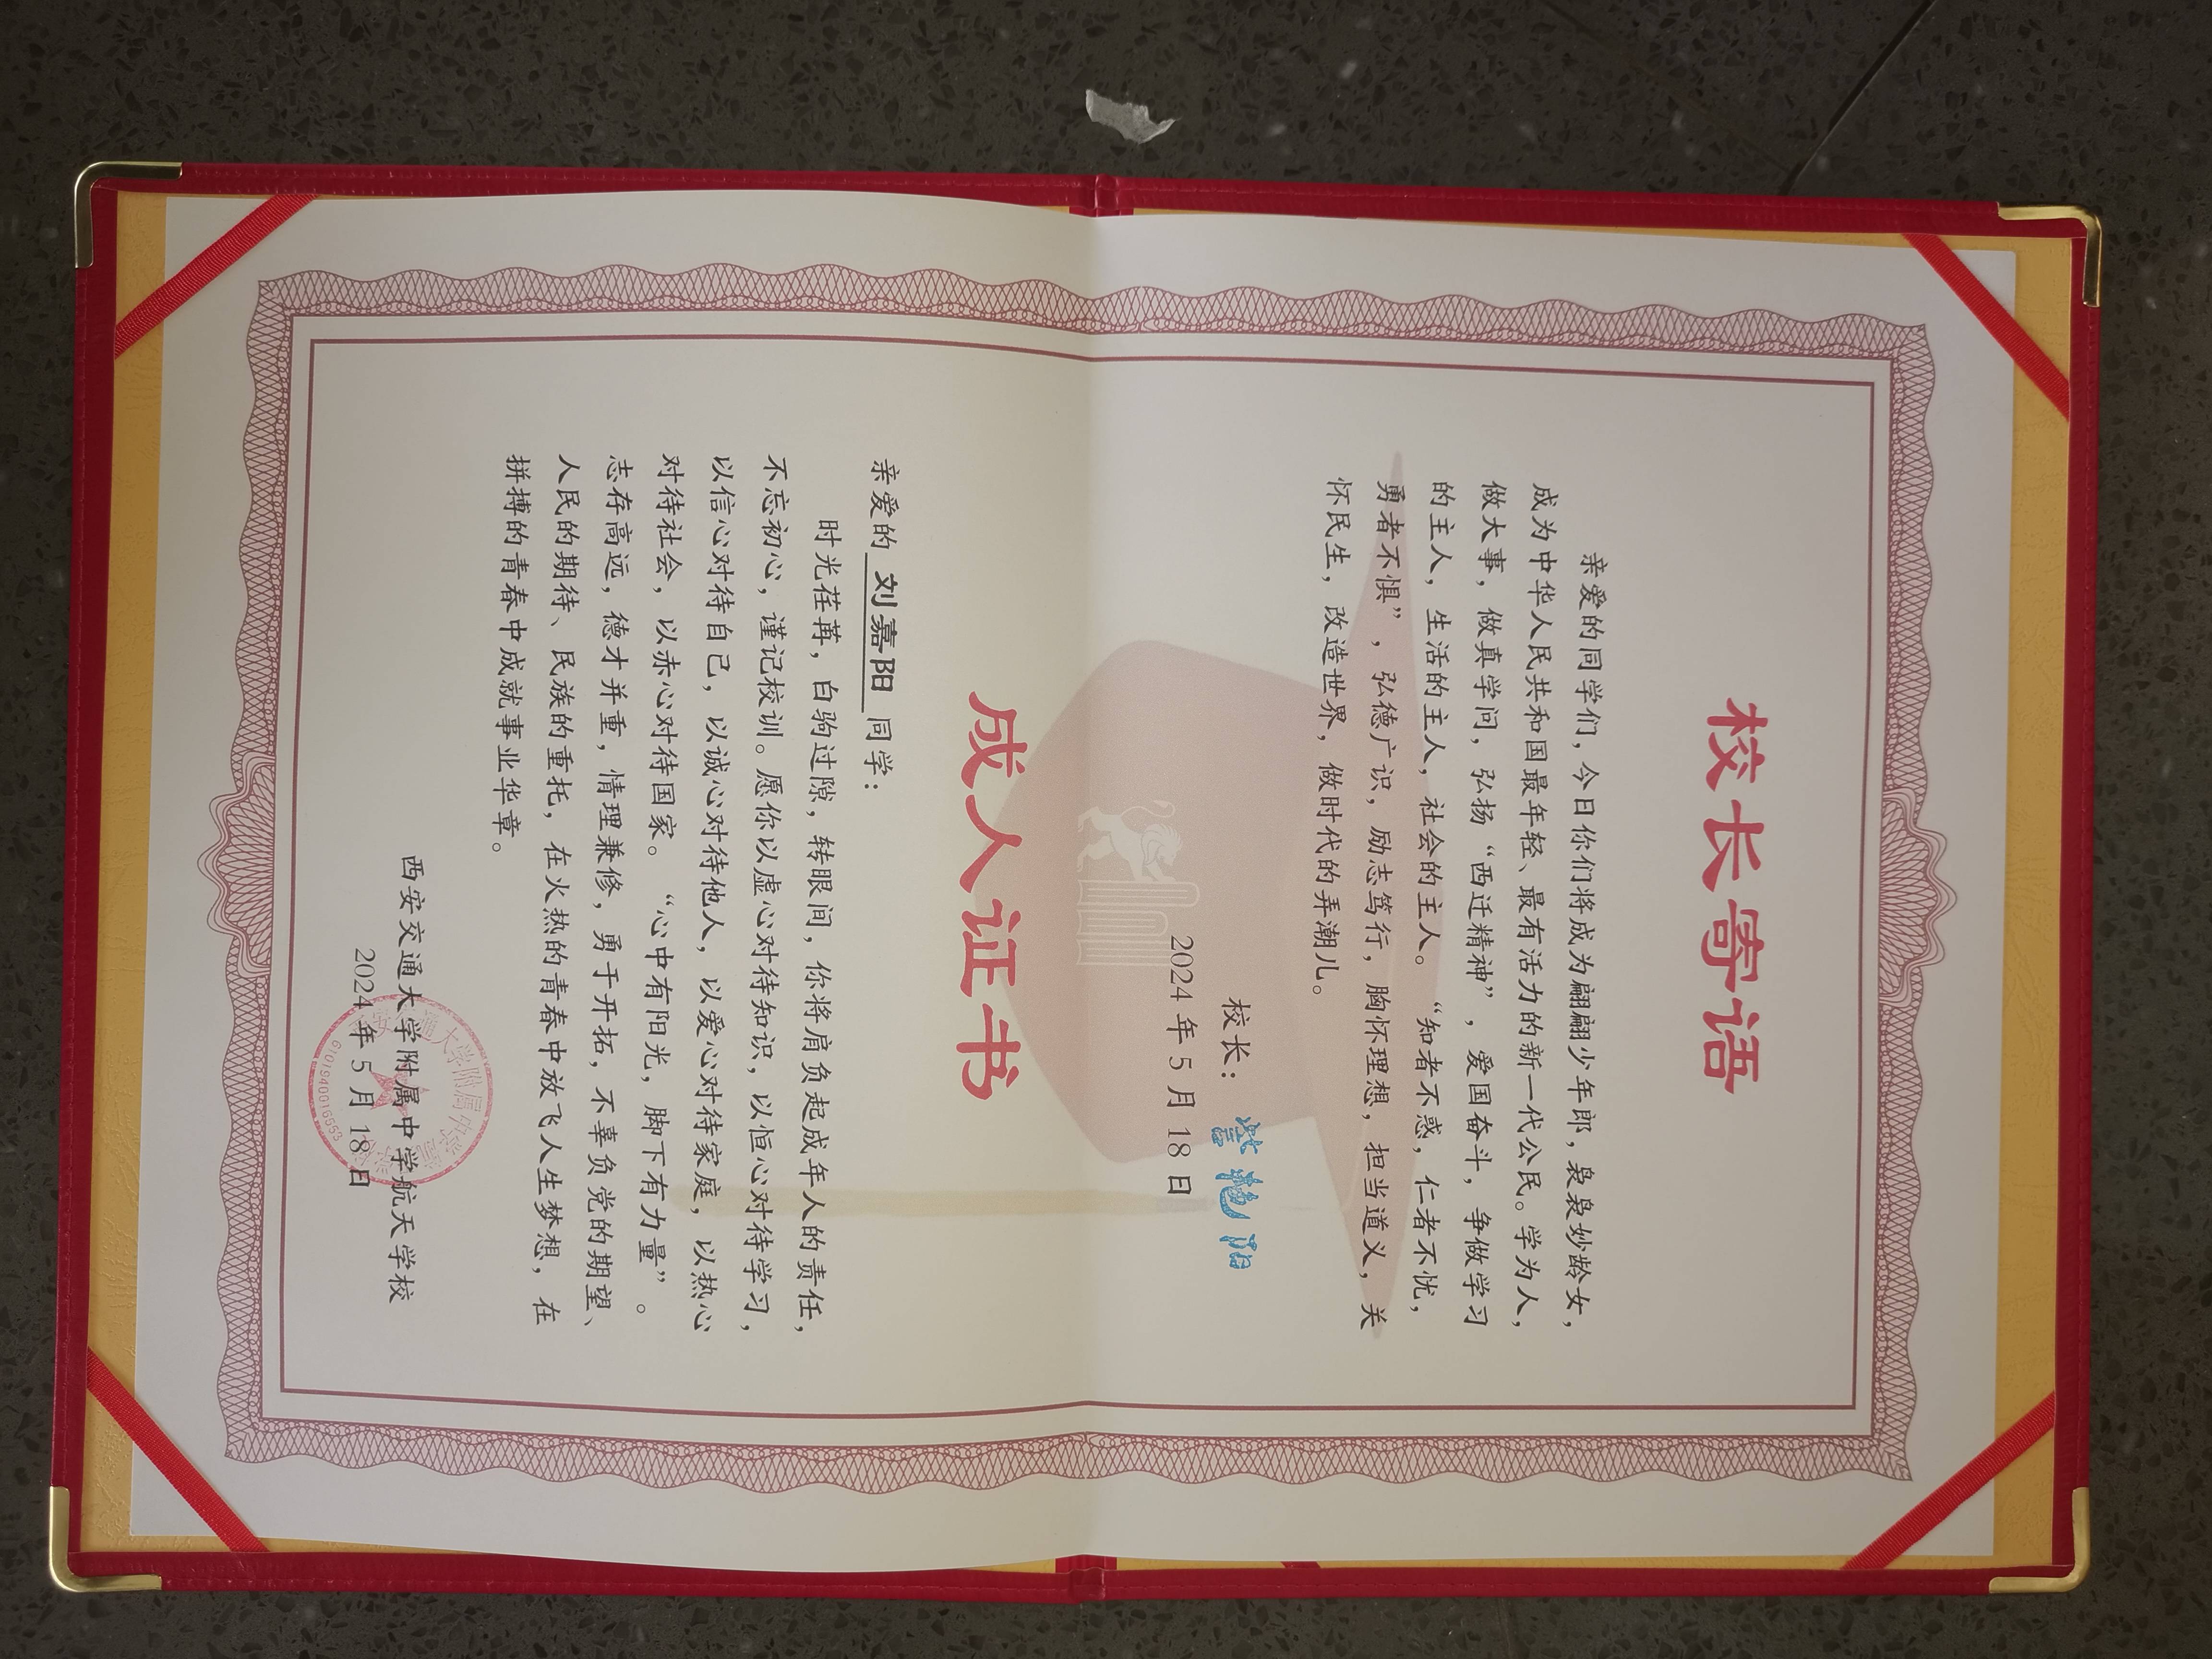 校长寄语
亲爱的同学们，今日你们将成为翩翩少年郎，袅袅妙龄女，
成为中华人民共和国最年轻、最有活力的新一代公民。学为人，
做大事，做真学问，弘扬“西迁精神”，爱国奋斗，争做学习
的主人，生活的主人，社会的主人。“知者不惑，仁者不忧，
勇者不惧”，弘德广识，励志笃行，胸怀理想，担当道义，关
怀民生，改造世界，做时代的弄潮儿。
校长：
2024 年 5 月 18 日
成人证书
亲爱的 刘嘉阳 同学：
时光荏苒，白驹过隙，转眼间，你将肩负起成年人的责任，
不忘初心，谨记校训。愿你以虚心对待知识，以恒心对待学习，
以信心对待自己，以诚心对待他人，以爱心对待家庭，以热心
对待社会，以赤心对待国家。“心中有阳光，脚下有力量”。
志存高远，德才并重，情理兼修，勇于开拓，不辜负党的期望、
人民的期待、民族的重托，在火热的青春中放飞人生梦想，在
拼搏的青春中成就事业华章。
西安交通大学附属中学航天学校
2024 年 5 月 18 日